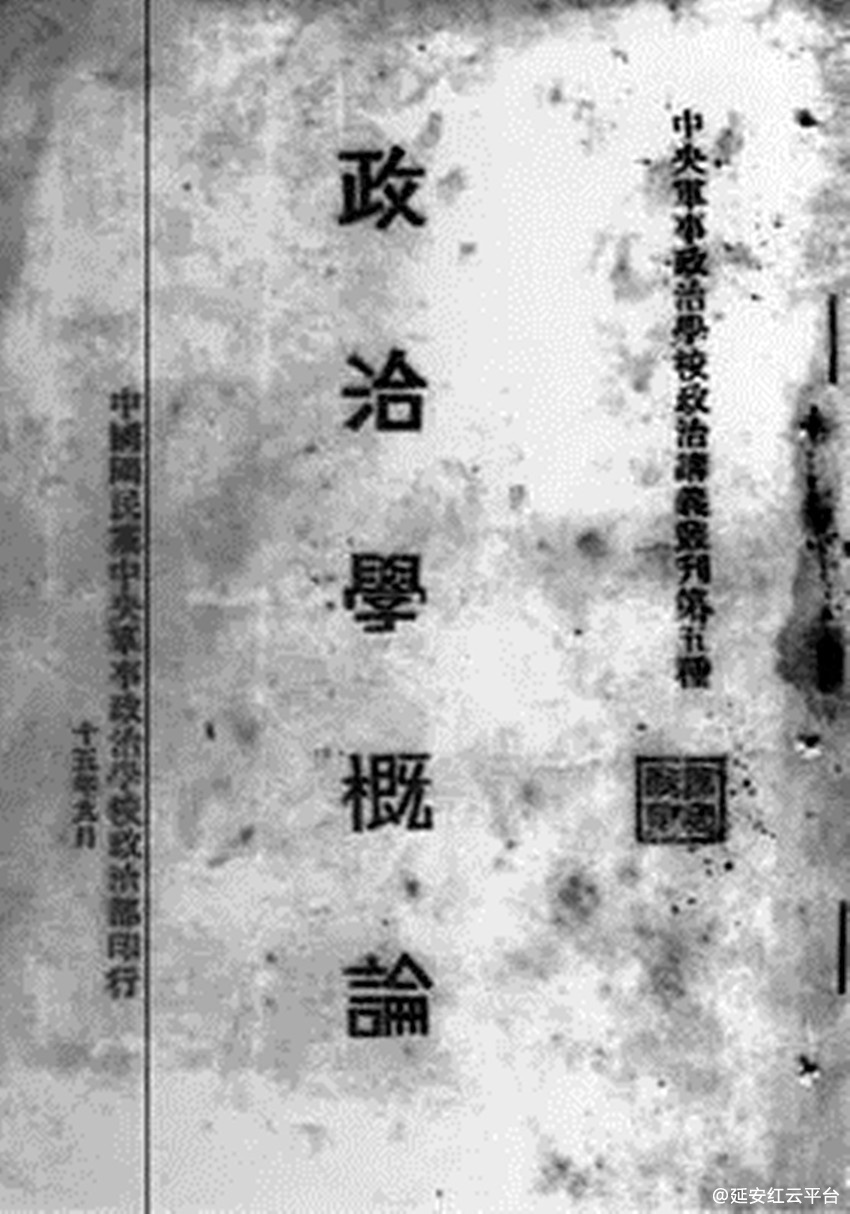 中央軍事政治學校政治講義叢刊第五種
政治學概論
中國國民黨中央軍事政治學校政治部印行
十五年九月
@延安红云平台